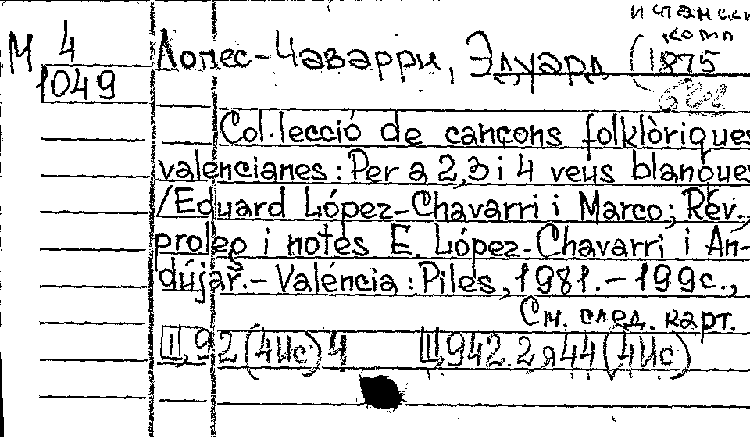 испанск.
комп
М 4
1049
Лопес-Чаварри, Эдуард (1875
Col·lecció de cançons folklòriques
valencianes: Per a 2,3 i 4 veus blanques
/Eduard López-Chavarri i Marco; Rev.,
proleg i notes E. López-Chavarri i An-
dújar.- Valéncia: Piles, 1981.-199c.,
См. след. карт.
Щ92(4Ис)4 Щ942.2я44(4Ис)